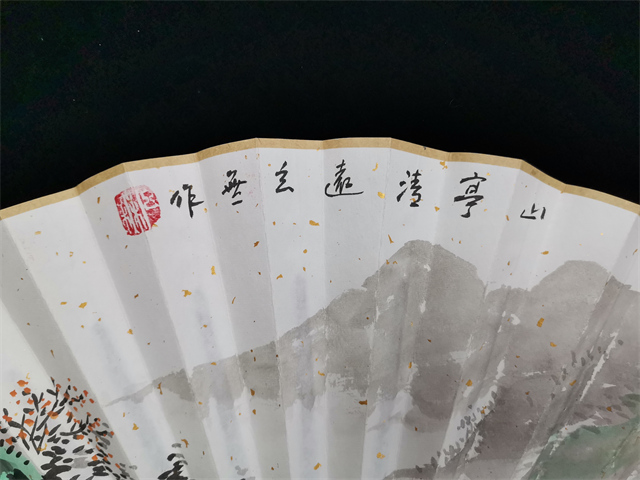 山亭清遠玄無作